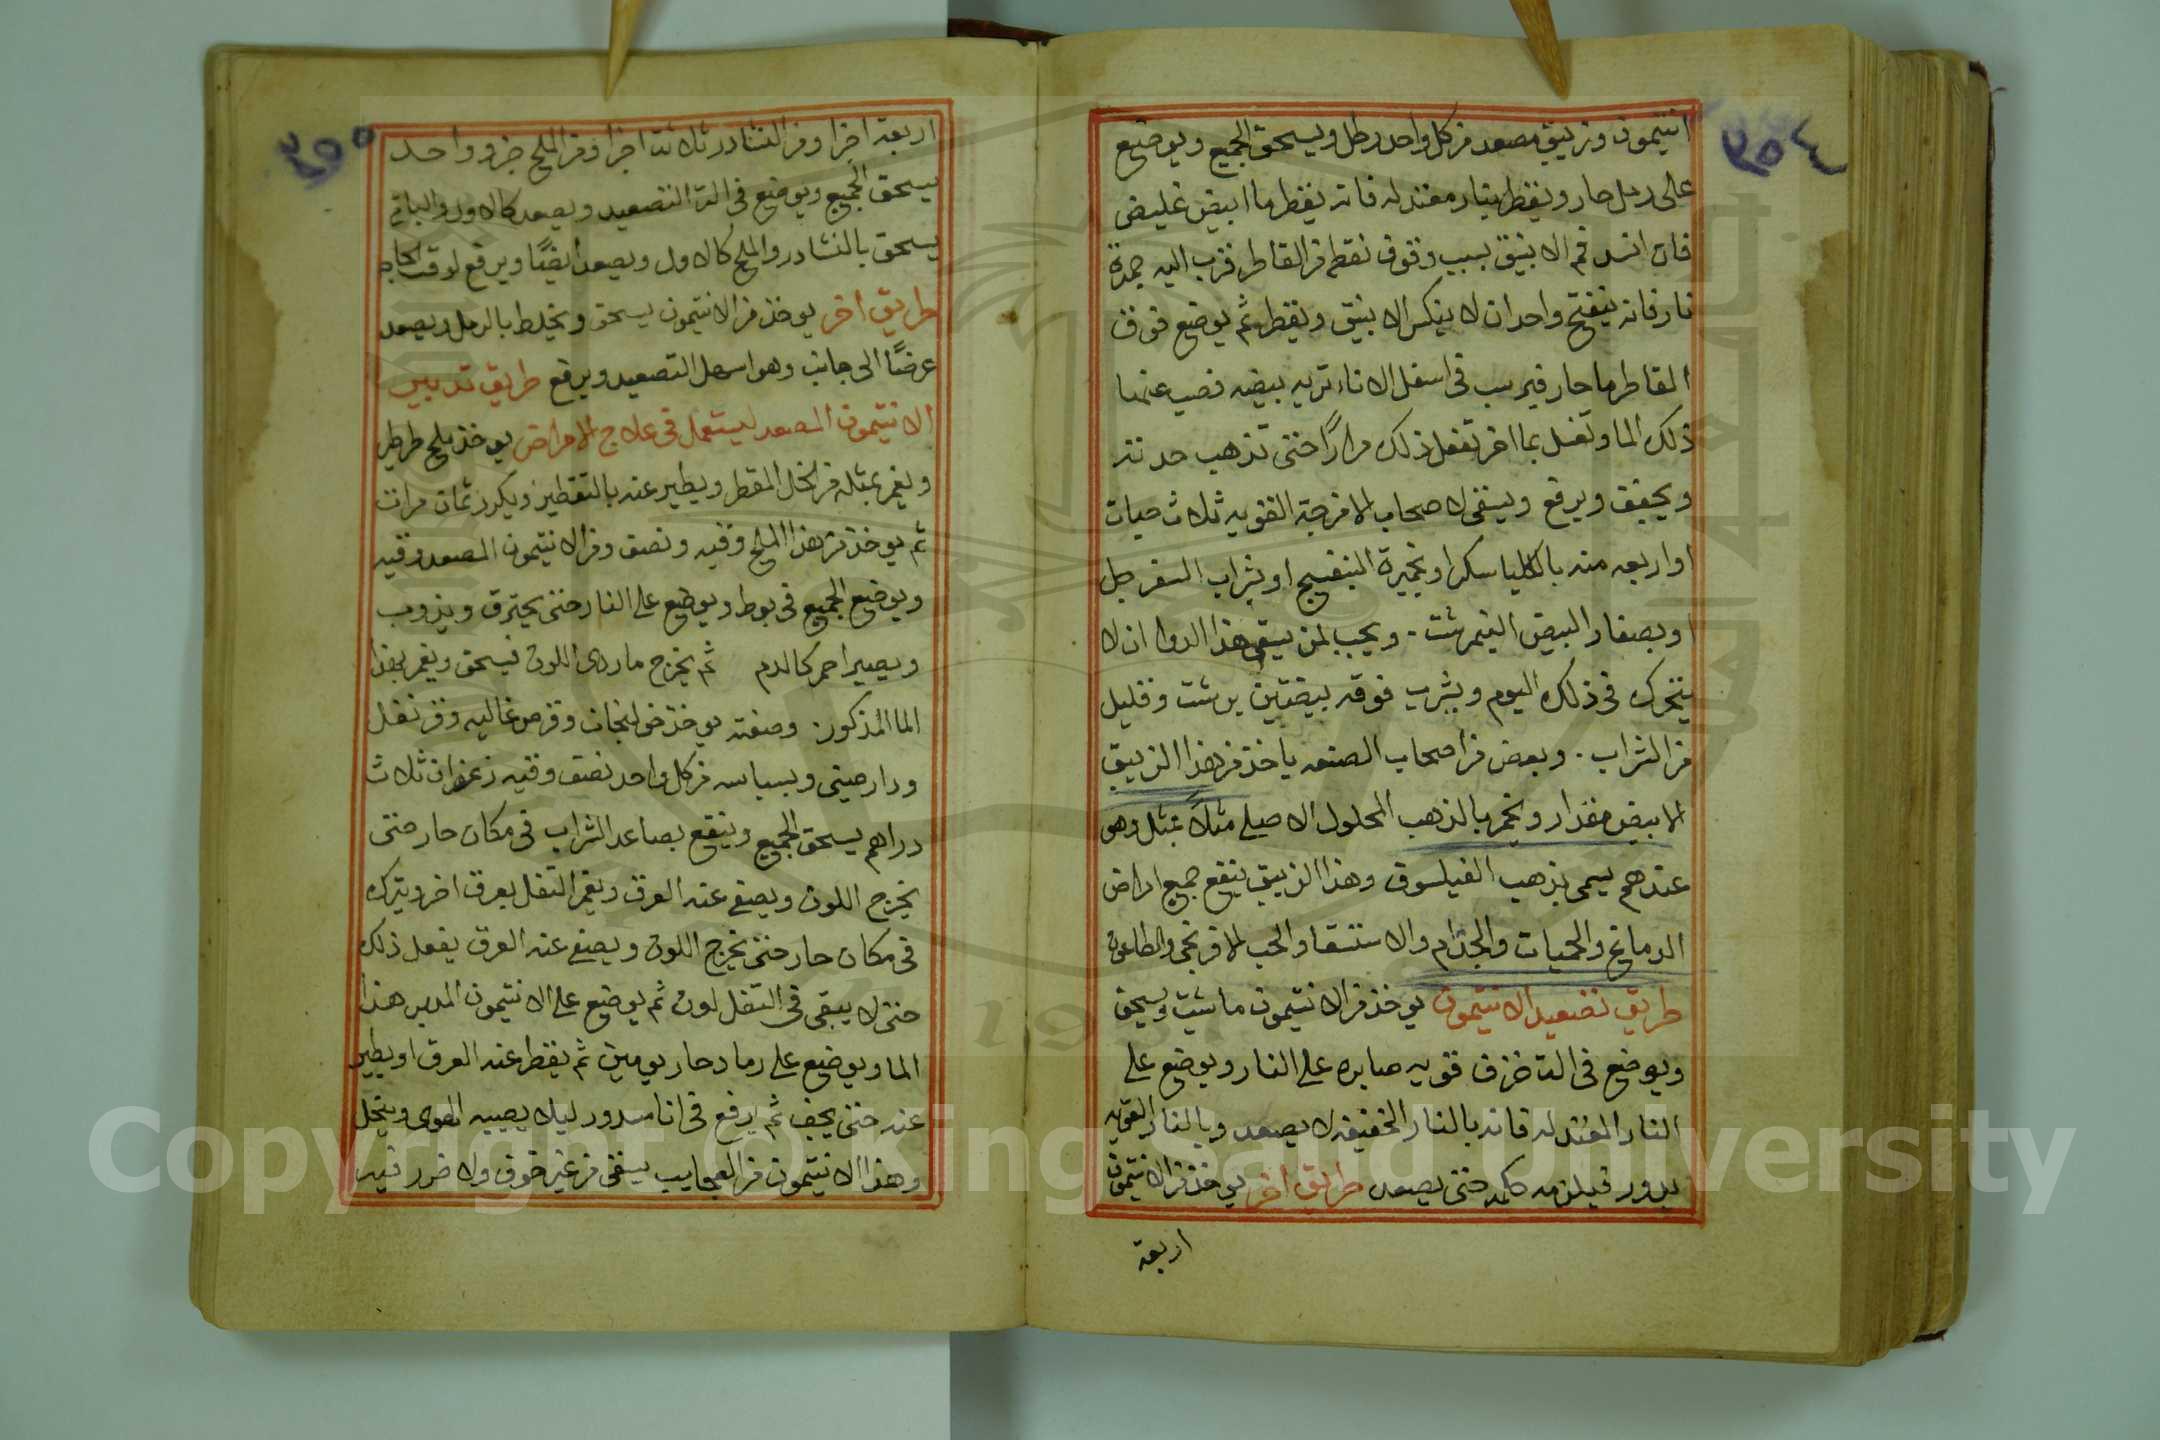 ٢٥٤
انتيمون وزيبق مصعد من كل واحد رطل ويسحق الجميع ويوضع
على رمل حار ويقطر بنار معتدله فانه يقطر ما ابيض غليض
فان انسد فم الانبيق بسبب وقوف نقطه من القاطر فقرب اليه جمرة
نار فانه ينفتح واحد ان لا ينكسر الانبيق ويقطر ثم يوضع فوق
القاطر ما حار فيرسب في اسفل الاناء تربه بيضه فصب عنها
ذلك الما وتغسل بما اخر تفعل ذلك مرارًا حتى تذهب حدته
ويجفف ويرفع ويسقى لاصحاب الامزجة القويه ثلاث حبات
او اربعه منه بالكلياسكر او بخميرة البنفسج او بشراب السفرجل
او بصفار البيض النيمرشت . ويجب لمن يسقى هذا الدوا ان لا
يتحرك في ذلك اليوم ويشرب فوقه بيضتين برشت وقليل
من الشراب . وبعض من اصحاب الصنعه ياخذ من هذا الزيبق
الابيض مقدار ويخمر بالذهب المحلول الاصيلي مثلاً بمثل وهو
عندهم يسمى بذهب الفيلسوف وهذا الزيبق ينفع جميع امراض
الدماغ والحميات والجذام والاستسقا والحب الافرنجي والطاعون
طريق تصعيد الانتيمون يوخذ من الانتيمون ما شيت ويسحق
ويوضع في الة خزف قويه صابره على النار ويوضع على
النار المعتدله فانه بالنار الخفيفه لا يصعد وبالنار القويه
يدور فيلزمه حتى يصعد طريق اخر يوخذ من الانتيمون
اربعة
٢٥٥
اربعة اجزا ومن النشادر ثلاثة اجزا ومن الملح جزو واحد
يسحق الجميع ويوضع في الة التصعيد ويصعد كالاول والباقي
يسحق بالنشادر والملح كالاول ويصعد ايضًا ويرفع لوقت الحاجه
طريق اخر يوخذ من الانتيمون يسحق ويخلط بالرمل ويصعد
عرضًا الى جانب وهو اسهل التصعيد ويرفع طريق تدبير
الانتيمون المصعد ليستعمل في علاج الامراض يوخذ ملح طرطير
ويغمر بمثله من الخل المقطر ويطير عنه بالتقطير ويكرر ثمان مرات
ثم يوخذ من هذا الملح وقيه ونصف ومن الانتيمون المصعد وقيه
ويوضع الجميع في بوط ويوضع على النار حتى يحترق ويذوب
ويصير احمر كالدم ثم يخرج مارى اللون فيسحق ويغمر بهذا
الما المذكور . وصفته يوخذ خولنجان وقرص غاليه وقرنفل
ودار صيني وبسباسه من كل واحد نصف وقيه زعفران ثلاث
دراهم يسحق الجميع وينقع بصاعد الشراب في مكان حار حتى
يخرج اللون ويصفى عنه العرق ويغمر التفل بعرق اخر ويترك
في مكان حار حتى يخرج اللون ويصفى عنه العرق يفعل ذلك
حتى لا يبقى في التفل لون ثم يوضع على الانتيمون المدبر هذا
الما ويوضع على رماد حار يومين ثم يقطر عنه العرق او يطير
عنه حتى يجف ثم يرفع في انا مسدود ليلا يصيبه الهوى وينحل
وهذا الانتيمون من العجايب يسقى من غير خوف ولا ضرر فيه
Copyright © King Saud University
1957